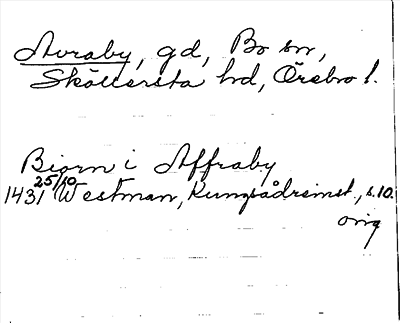 Avraby, gd, Bo sn,
Sköllersta hd, Örebro l.
Biorn i Affraby
1431 25/10 Westman, Kungsådreinst., s. 10.
orig